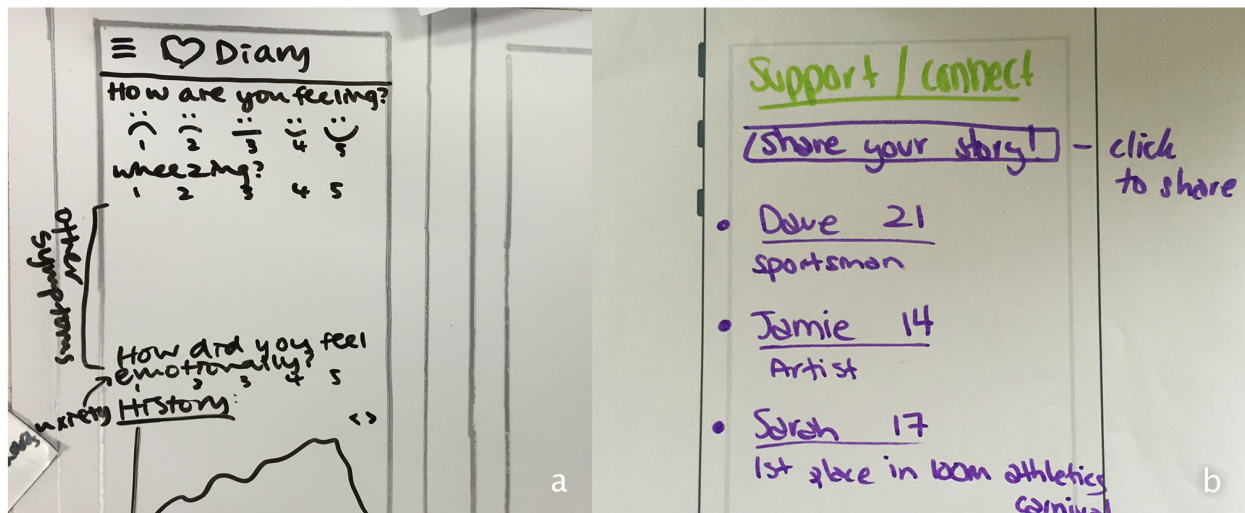 Diary
How are you feeling?
1 2 3 4 5
wheezing?
1 2 3 4 5
other
symptoms
How did you feel
emotionally?
1 2 3 4 5
anxiety
History:
< >
a
Support / connect
Share your story!
- click
to share
• Dave 21
sportsman
• Jamie 14
Artist
• Sarah 17
1st place in 100m athletics
carnival
b